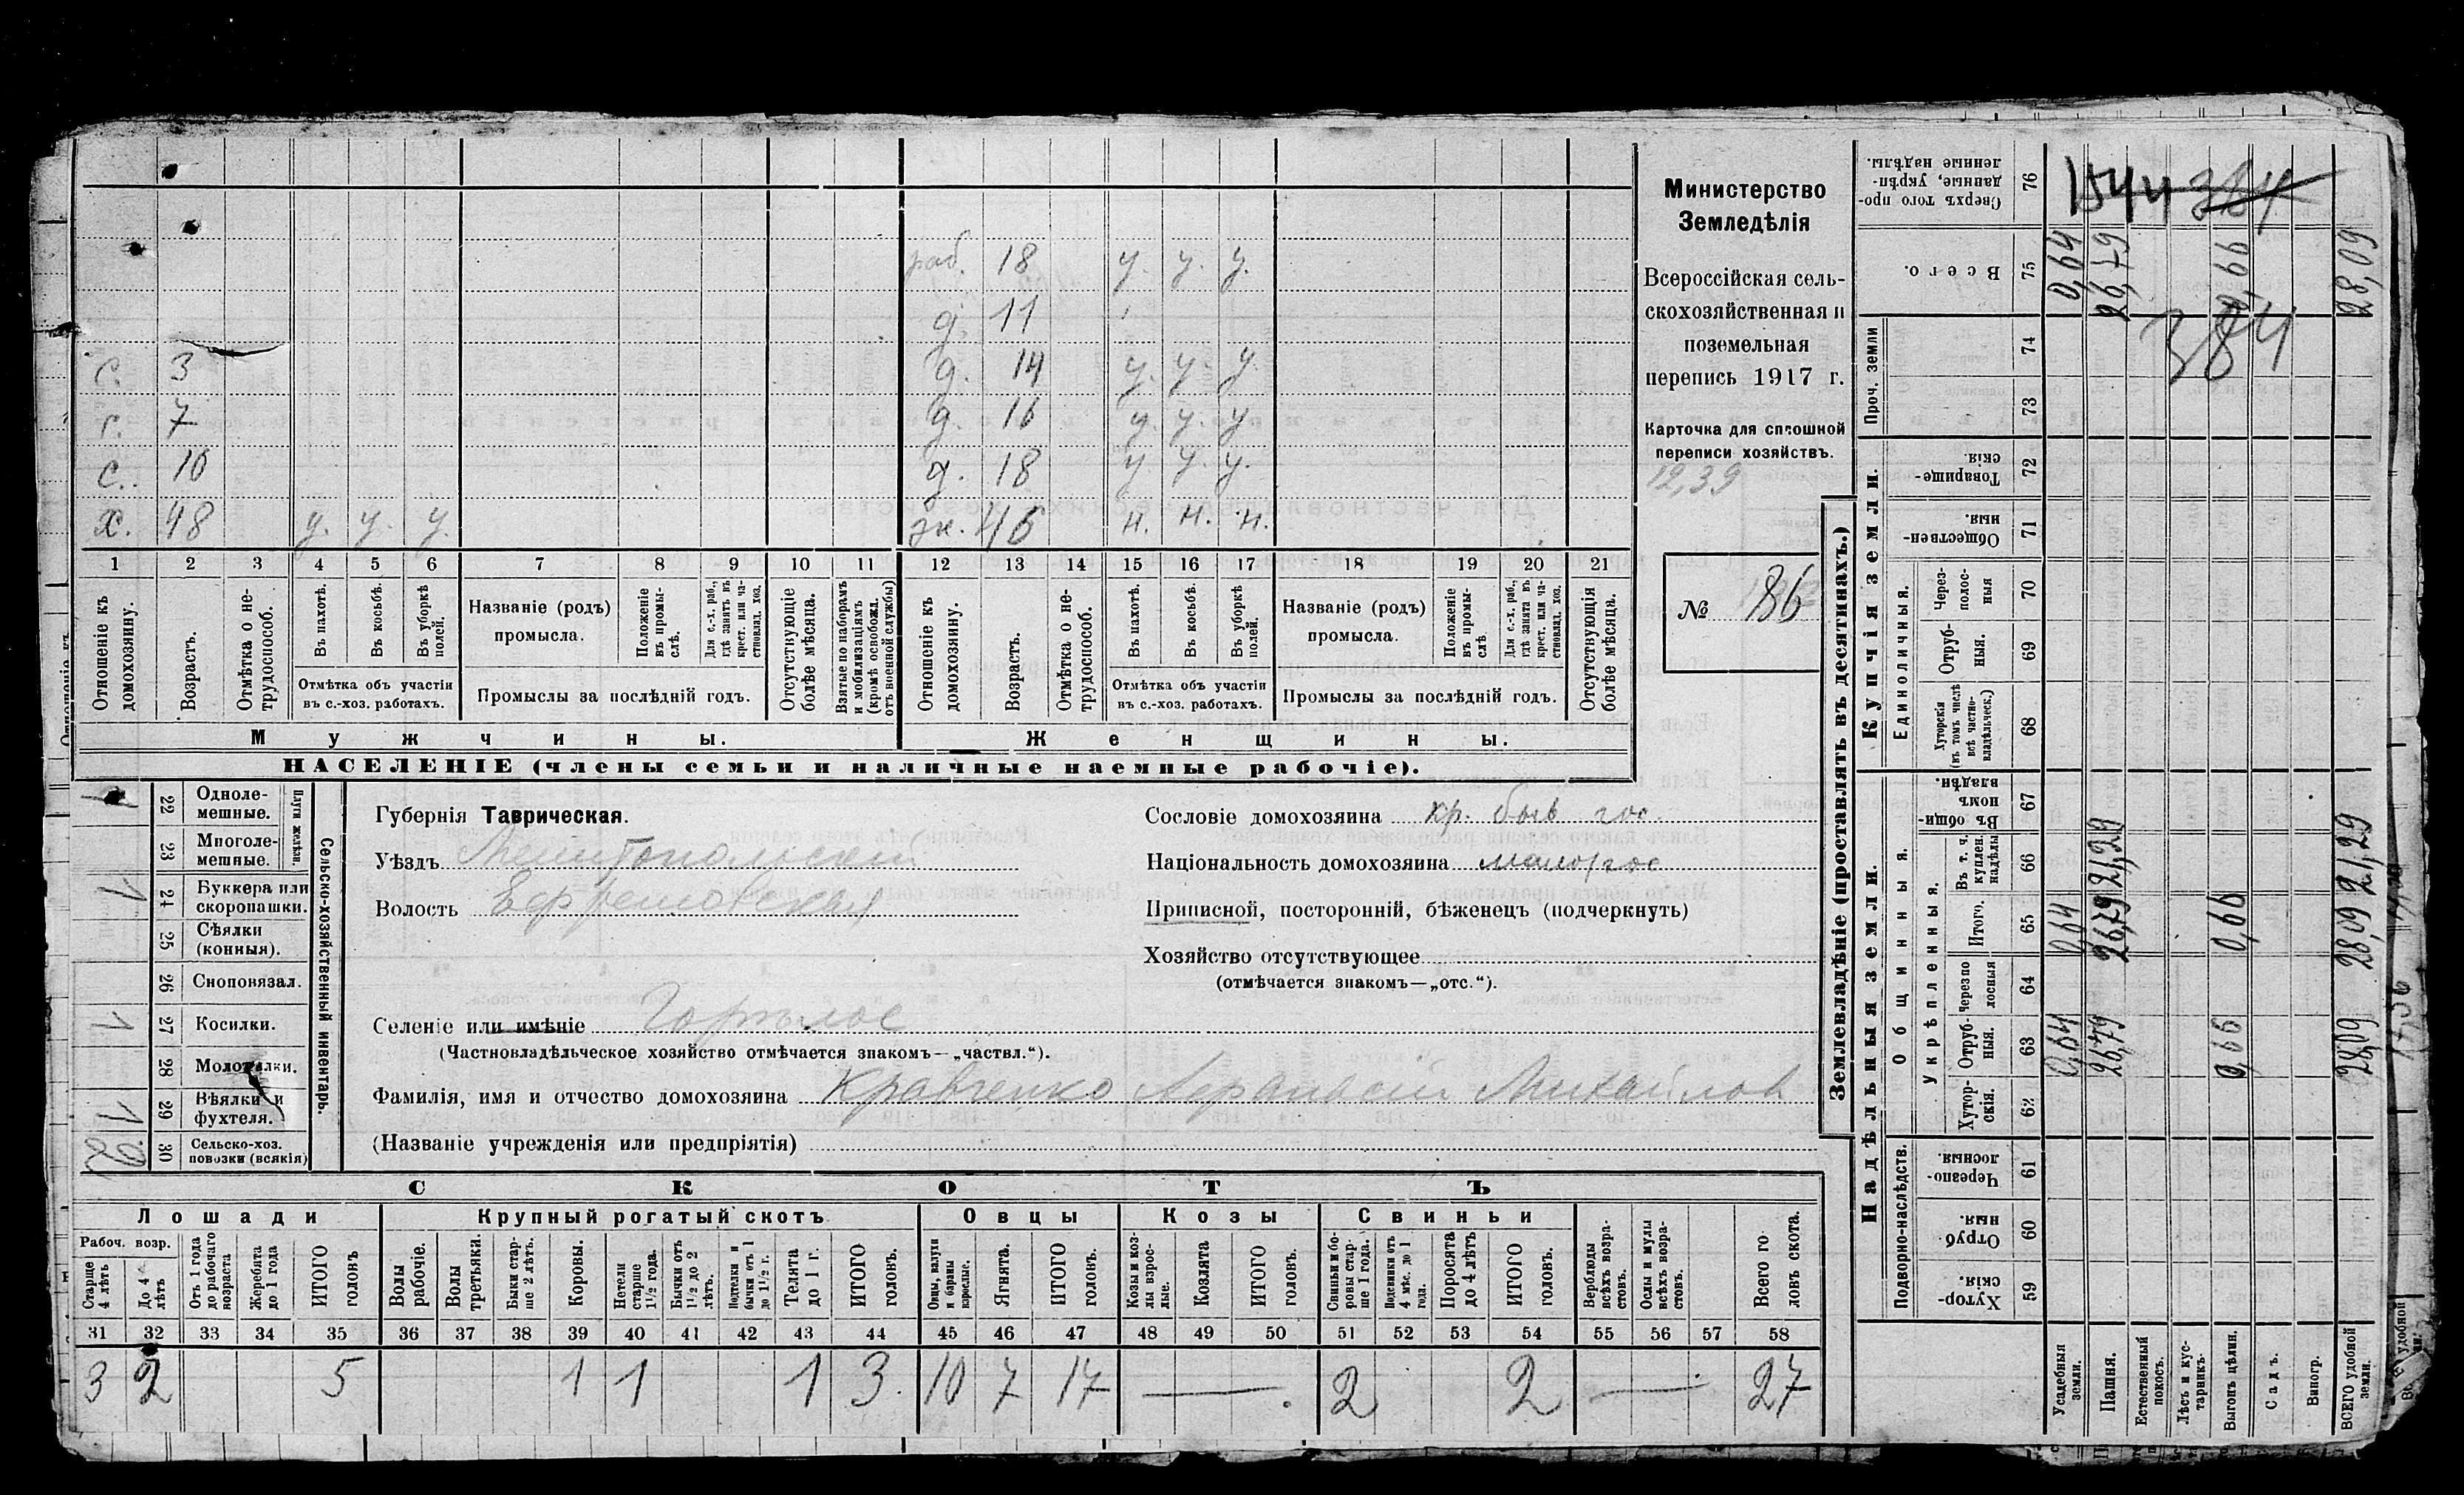 раб. 18 у. у. у.
д. 11
с. 3 д. 14 у. у. у.
с. 7 д. 16 у. у. у
с. 10 д. 18 у. у. у.
х. 48 у. у. у. ж. 46 н. н. н.
1 2 3 4 5 6 7 8 9 10 11 12 13 14 15 16 17 18 19 20 21
Отношеніе къ домохозяину.
Возрастъ.
Отмѣтка о не-трудоспособ.
Въ пахотѣ.
Въ косьбѣ.
Въ уборкѣ полей.
Отмѣтка объ участіи
въ с.-хоз. работахъ.
Названіе (родъ)
промысла.
Положеніе въ промы-слѣ.
Для с.-х. раб., гдѣ занятъ въ крест. или ча-стновлад. хоз.
Промыслы за послѣдній годъ.
Отсутствующіе болѣе мѣсяца.
Взятые по наборамъ и мобилизаціямъ (кромѣ освобожд. отъ военной службы)
Отношеніе къ домохозяину.
Возрастъ.
Отмѣтка о не-трудоспособ.
Въ пахотѣ.
Въ косьбѣ.
Въ уборкѣ полей.
Отмѣтка объ участіи
въ с.-хоз. работахъ.
Названіе (родъ)
промысла.
Положеніе въ промы-слѣ.
Для с.-х. раб., гдѣ занята въ крест. или ча-стновлад. хоз.
Промыслы за послѣдній годъ.
Отсутствующія болѣе мѣсяца.
Мужчины. Женщины.
НАСЕЛЕНІЕ (члены семьи и наличные наемные рабочіе).
Министерство
Земледѣлія
Всероссійская сель-
скохозяйственная и
поземельная
перепись 1917 г.
Карточка для сплошной
переписи хозяйствъ.
12,39
№ 86
Сельско-хозяйственный инвентарь.
Плуги желѣзн.
22 Одноле-мешные.
23 Многоле-мешные.
1 24 Буккера или скоропашки.
25 Сѣялки (конныя).
26 Сноповязал.
1 27 Косилки.
28 Молотилки.
1 29 Вѣялки и фухтеля.
2 30 Сельско-хоз. повозки (всякія)
Губернія Таврическая.
Уѣздъ Мелитопольскій
Волость Ефремовская
Селеніе или имѣніе
(Частновладѣльческое хозяйство отмѣчается знакомъ—„частвл.“).
Фамилія, имя и отчество домохозяина Кравченко Афанасій Михайлов
(Названіе учрежденія или предпріятія)
Сословіе домохозяина кр. быв гос.
Національность домохозяина малорос
Приписной, посторонній, бѣженецъ (подчеркнуть)
Хозяйство отсутствующее
(отмѣчается знакомъ—„отс.“).
СКОТЪ
Лошади Крупный рогатый скотъ Овцы Козы Свиньи
Рабоч. возр.
Старше 4 лѣтъ
До 4 лѣтъ
Отъ 1 года до рабочаго возраста
Жеребята до 1 года
ИТОГО головъ
Волы рабочіе.
Волы третьяки.
Быки стар-ше 2 лѣтъ.
Коровы.
Нетели старше 1 1/2 года.
Бычки отъ 1 1/2 до 2 лѣтъ.
Подтелки и бычки отъ 1 до 1 1/2 г.
Телята до 1 г.
ИТОГО головъ.
Овцы, валухи и бараны взрослые.
Ягнята.
ИТОГО головъ.
Козы и коз-лы взрос-лые.
Козлята
ИТОГО головъ.
Свиньи и бо-ровы стар-ше 1 года.
Подсвинки отъ 4 мѣс. до 1 года.
Поросята до 4 лѣтъ
ИТОГО головъ.
Верблюды всѣхъ возра-стовъ.
Ослы и мулы всѣхъ возра-стовъ.
Всего го-ловъ скота.
31 32 33 34 35 36 37 38 39 40 41 42 43 44 45 46 47 48 49 50 51 52 53 54 55 56 57 58
3 2 5 1 1 1 3. 10 7 17 — 2 2 — 27
Землевладѣніе (проставлять въ десятинахъ.)
Надѣльныя земли. Купчія земли. Проч. земли
Подворно-наслѣдств. Общинныя. Укрѣпленныя. Единоличныя.
59 Хутор-скія.
60 Отруб-ныя.
61 Черезпо-лосныя.
62 Хутор-скія.
63 Отруб-ныя.
64 Черезпо-лосныя
65 Итого.
66 Въ т. ч. куплен. надѣлы
67 Въ общин-номъ владѣн.
68 Хуторскія (въ томъ числѣ всѣ частно-владѣльческ.)
69 Отруб-ныя.
70 Через-полос-ныя
71 Обществен-ныя.
72 Товарище-скія.
73
74
75 Всего.
76 Сверхъ того про-данные, укрѣп-ленные надѣлы.
Усадебныя земли. 0,64 0,64 0,64
Пашня. 26,79 26,79 21,29 26,79
Естественный покосъ.
Лѣсъ и кус-тарникъ.
Выгонъ цѣлин. 0,66 0,66 0,66
Садъ.
Виногр.
ВСЕГО удобной земли. 28,09 28,09 21,29 28,09
1544 384
384